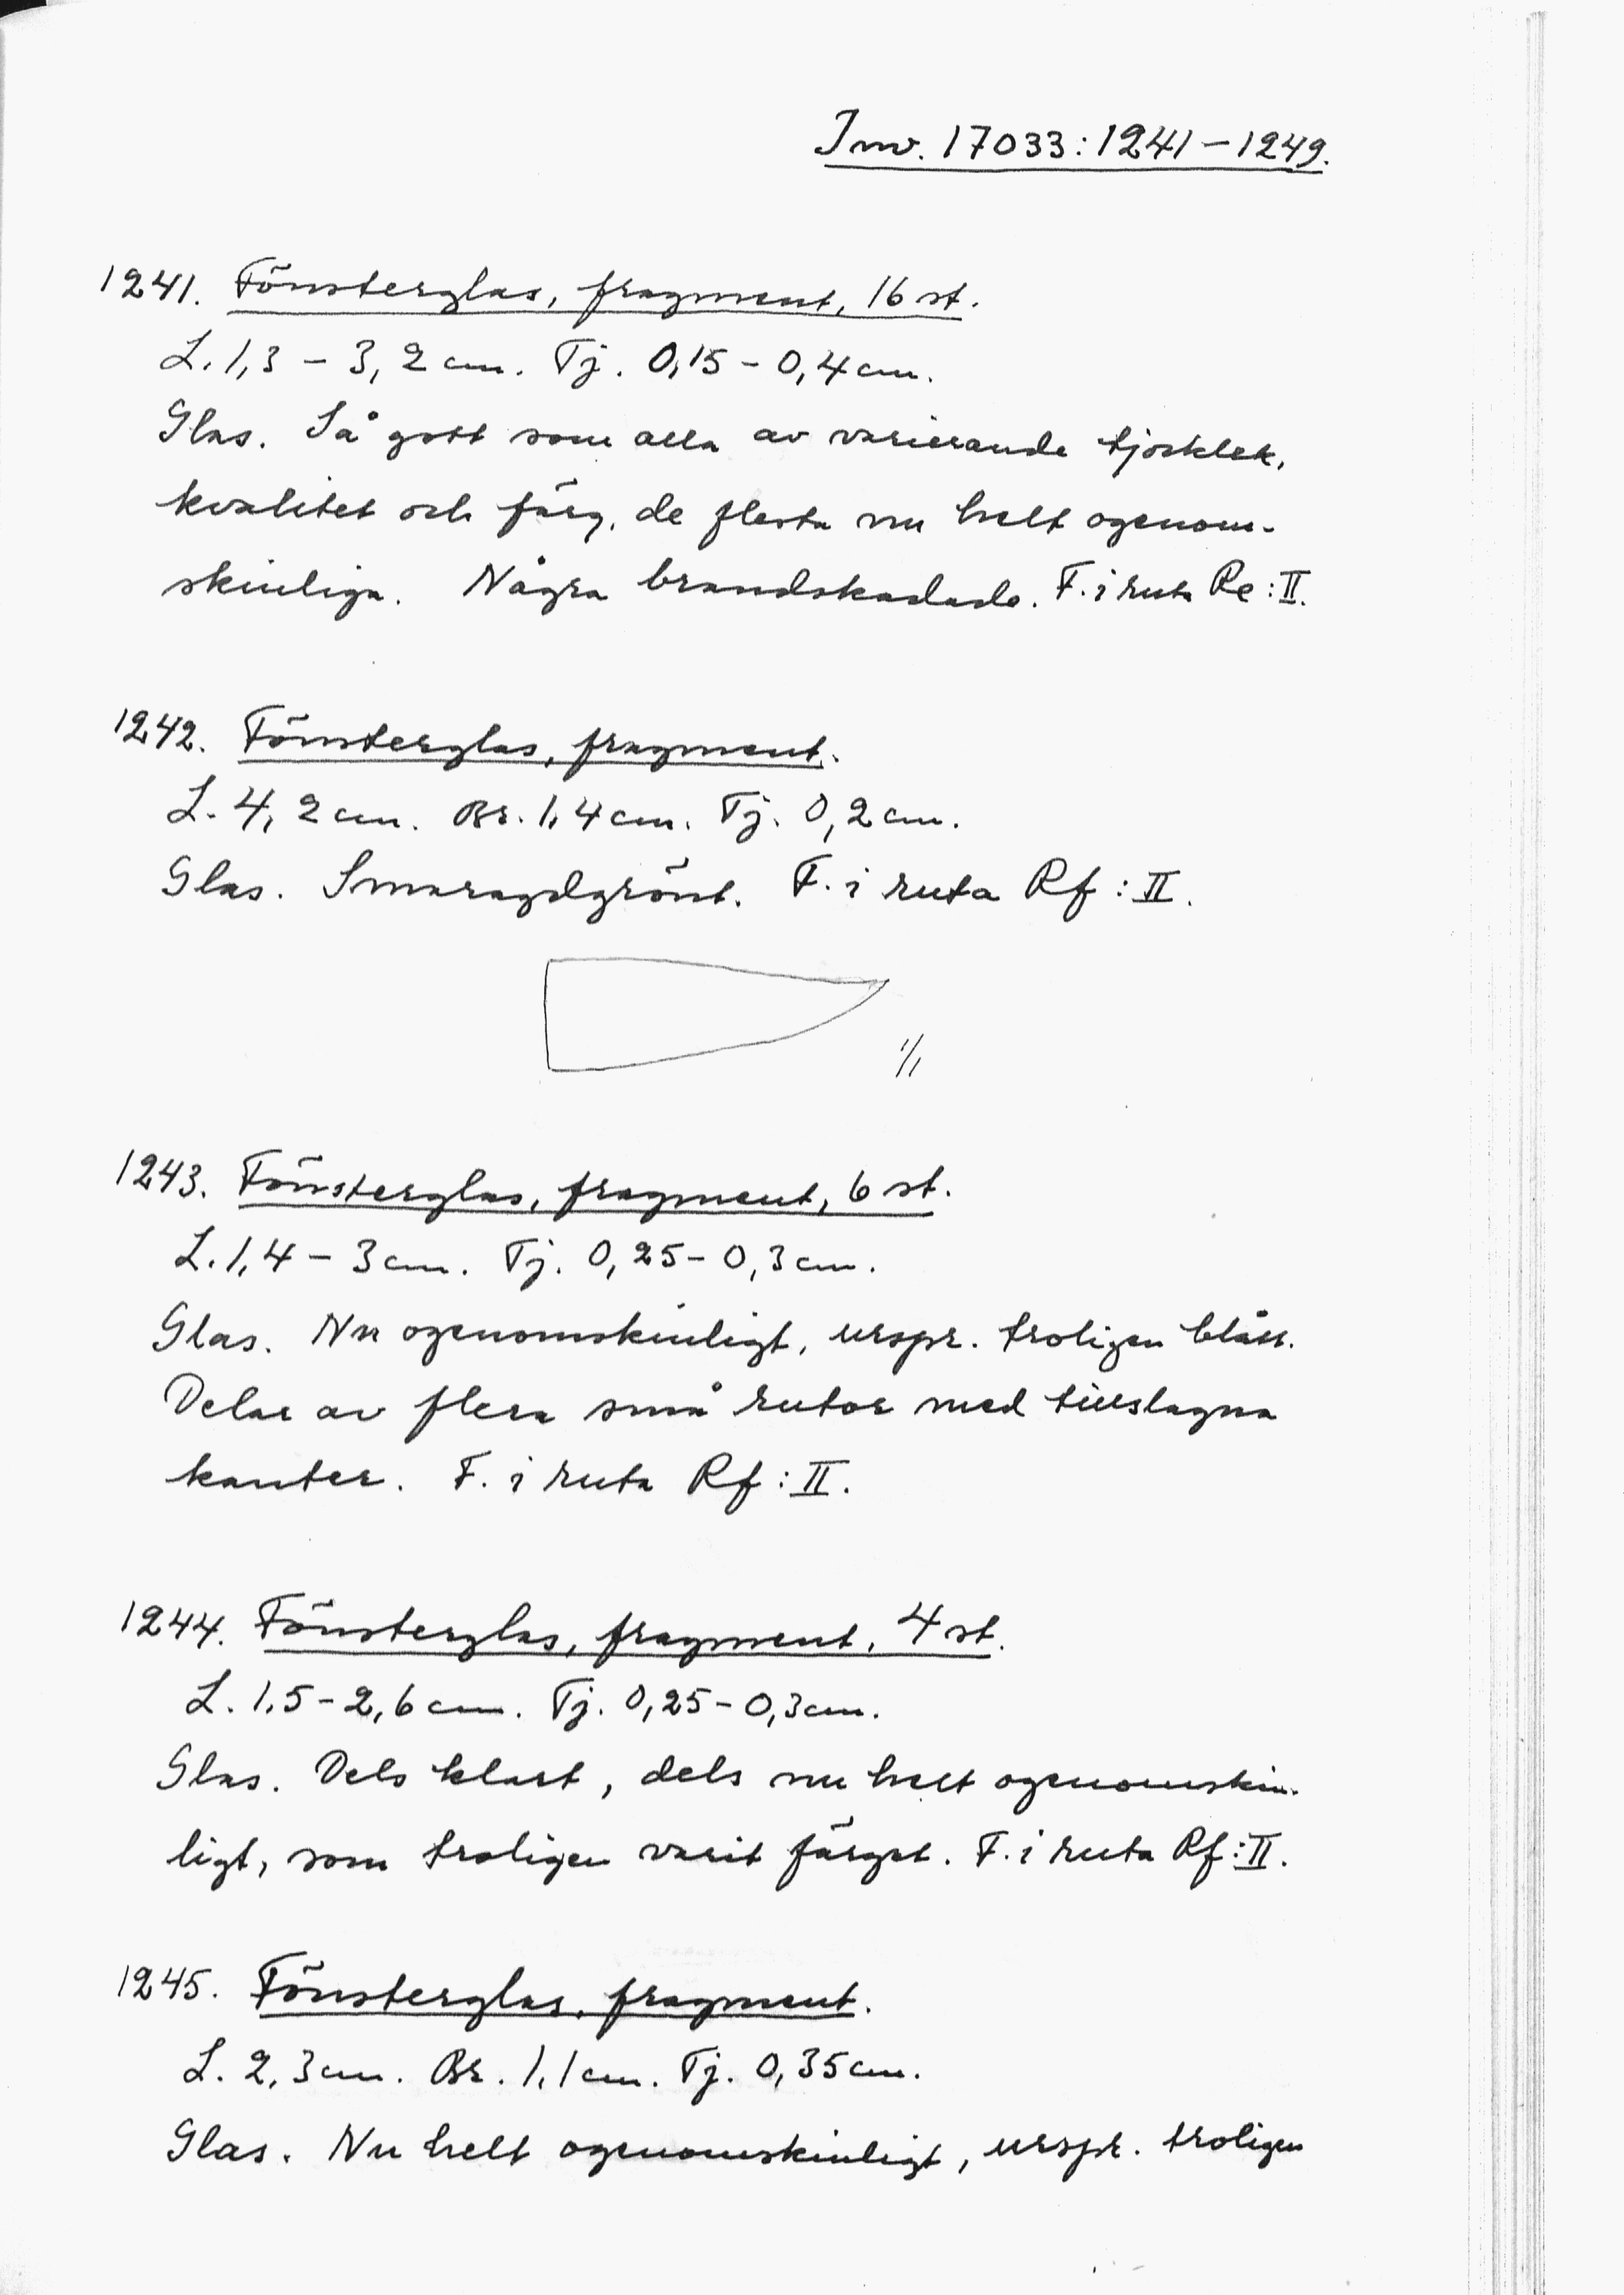 Inv. 17033:1241–1249.
1241. Fönsterglas, fragment, 16 st.
L. 1,3 – 3,2 cm. Tj. 0,15 – 0,4 cm.
Glas. Så gott som alla av varierande tjocklek,
kvalitet och färg, de flesta nu helt ogenom-
skinliga. Några brandskadade. F. i ruta Re:II.
1242. Fönsterglas, fragment.
L. 4,2 cm. Br. 1,4 cm. Tj. 0,2 cm.
Glas. Smaragdgrönt. F. i ruta Rf:II.
1/1
1243. Fönsterglas, fragment, 6 st.
L. 1,4 – 3 cm. Tj. 0,25 – 0,3 cm.
Glas. Nu ogenomskinligt, urspr. troligen blått.
Delar av flera små rutor med tillslagna
kanter. F. i ruta Rf:II.
1244. Fönsterglas, fragment, 4 st.
L. 1,5 – 2,6 cm. Tj. 0,25 – 0,3 cm.
Glas. Dels klart, dels nu helt ogenomskin-
ligt, som troligen varit färgat. F. i ruta Rf:II.
1245. Fönsterglas, fragment.
L. 2,3 cm. Br. 1,1 cm. Tj. 0,35 cm.
Glas. Nu helt ogenomskinligt, urspr. troligen